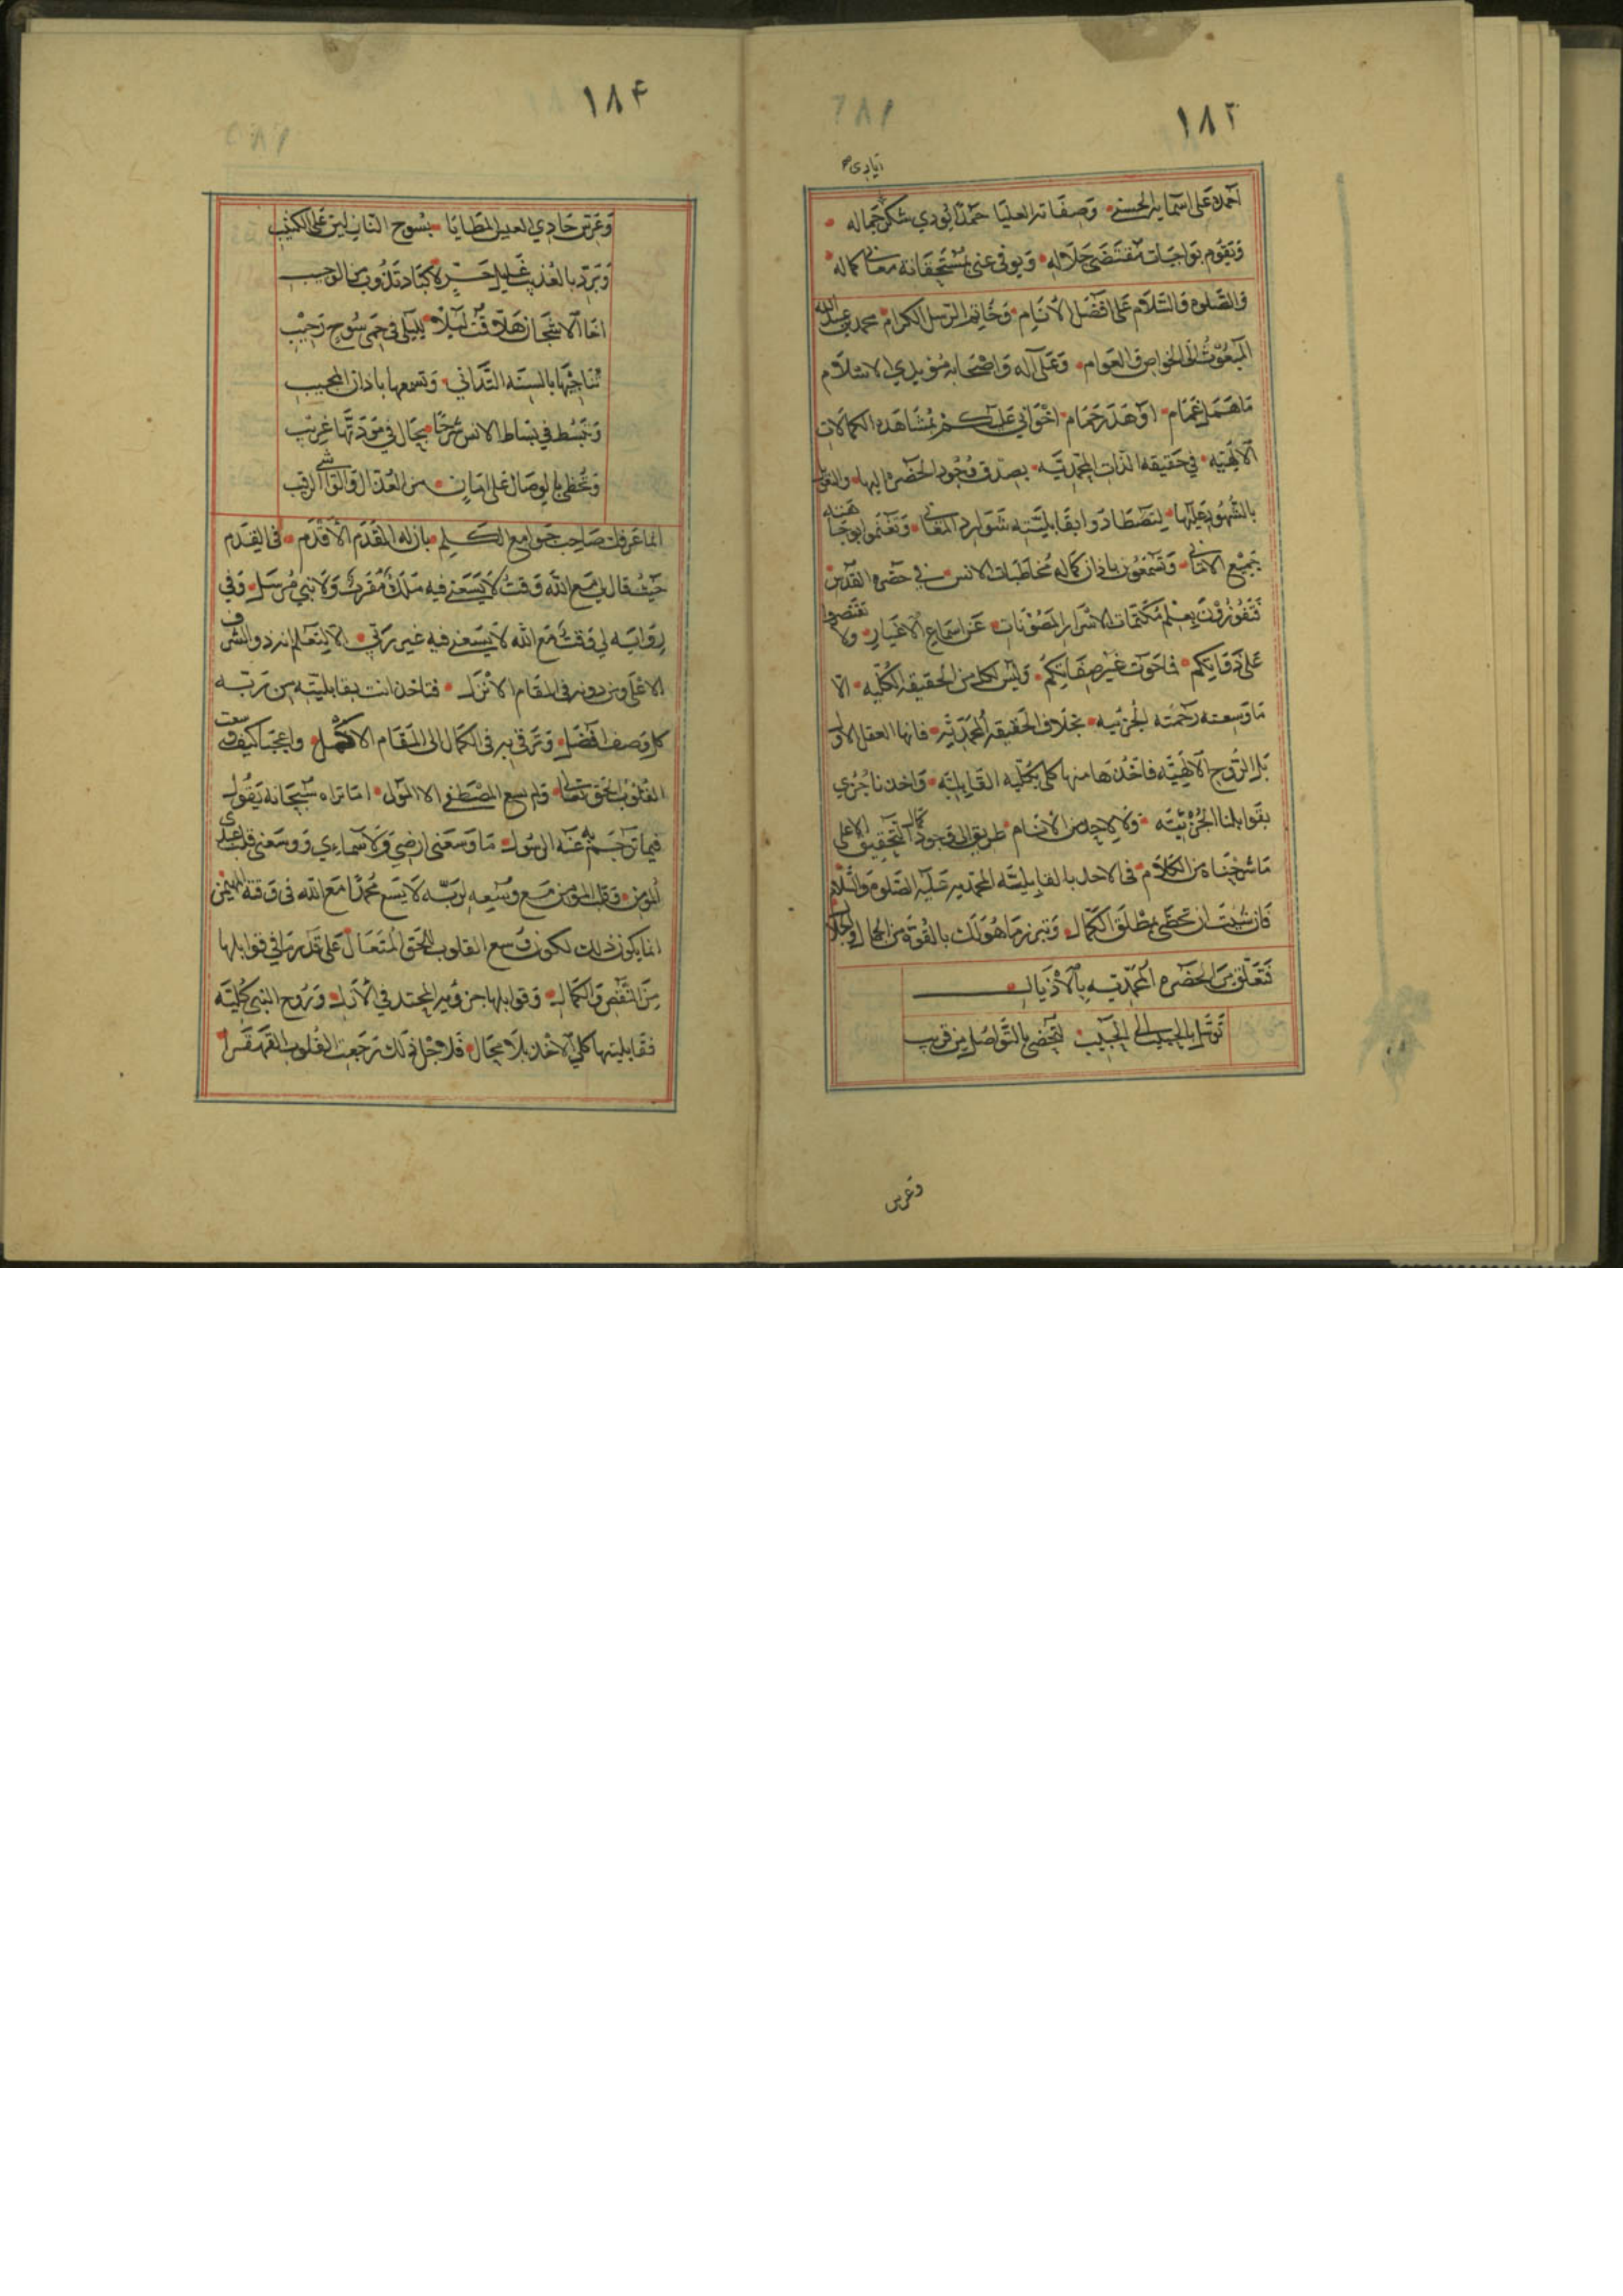 ١٨٣
ايادي
احمده على اسمايه الحسنى وصفاته العليا حمدا يودي شكر جماله
ويقوم بواجبات مقتضى جلاله ويوفي عني بمستحقات معاني كماله
والصلوه والسلام على افضل الانام وخاتم الرسل الكرام محمد بن عبد الله
المبعوث الى الخواص والعوام وعلى آله واصحابه مؤيدي الاسلام
ما همل غمام او هدر حمام اخواني عليكم بمشاهده الكمالات
الالهيه في حقيقه الذات المحمديه بصدق وجود الحضره اليها
بالشهود عليها لتصطادوا بقابليته شوارد المعاني وتغنموا بوجاهته
بجميع الاماني وتسمعون باذان كماله مخاطبات الانس في حضره القدس
فتفوزون بعلم مكتمات الاسرار المصونات عن اسماع الاغيار ولا تقتصروا
على ذواتكم فما حوت غير صفاتكم وليس لكل من الحقيقه الكليه الا
ما وسعته رحمته الجزئيه بخلاف الحقيقه المحمديه فانها العقل الاول
بل الروح الالهيه فاخذها منها كلى بكليه القابليه واخذنا جزي
بقوابلنا الجزئيه ولا لاحد من الانام طريق الى وجود كمال التحقيق الاعلى
ما شرحناه من الكلام في الاحد بالقابليه المحمديه عليه الصلوه والسلام
فان شيت ان تحظى بمطلق الكمال وتبرز ما هو لك بالقوه من الجمال والجلال
فتعلق من الحضره المحمديه بالاذيال
توسل بالحبيب الى الحبيب لتحضى بالتواصل من قريب
وعرس
١٨٤
وعرس حادي العيس المطايا بسوح البان لين على الكثيب
وتبرد بالعذيب غليل حر لاكباد تذوب من الوجيب
اخا الاشجان هلا قمت ليلا بليلى في حمى سوح رحيب
تناجيها بالسنه التداني وتسمعها باذان المجيب
وتبسط في بساط الانس شرحا بحال في مودتها غريب
وتحظى بالوصال على امان من العذال والواشي الرقيب
اما عرفك صاحب جوامع الكلم بان له المقدم الاقدم في القدم
حيث قال لي مع الله وقت لا يسعني فيه ملك مقرب ولا نبي مرسل وفي
روايه لي وقت مع الله لا يسعني فيه غير ربي الا ليعلم انه ذو الشرف
الاعلى ومن دونه في المقام الانزل فتاخذ انت بقابليته من مرتبه
كل وصف افضل وترقى به في الكمال الى المقام الاكمل واعجبا كيف وسعت
القلوب الحق تعالى ولم يسع المصطفى الا المولى اما تراه سبحانه يقول
فيما ترجم به عنه الرسول ما وسعني ارضي ولا سماءي ووسعني قلب عبدي
المومن وقلب المؤمن مع وسعه لربه لا يسع محمدا مع الله في وقته المهيمن
انما يكون ذلك لكون وسع القلوب للحق المتعال على قدر ما في قوابلها
من النقص والكمال وقوابلها جزويه المحتد في الازل وروح النبي كليته
فقابليتها كلي الاخذ بلا مجال فلاجل ذلك رجعت القلوب القهقرا